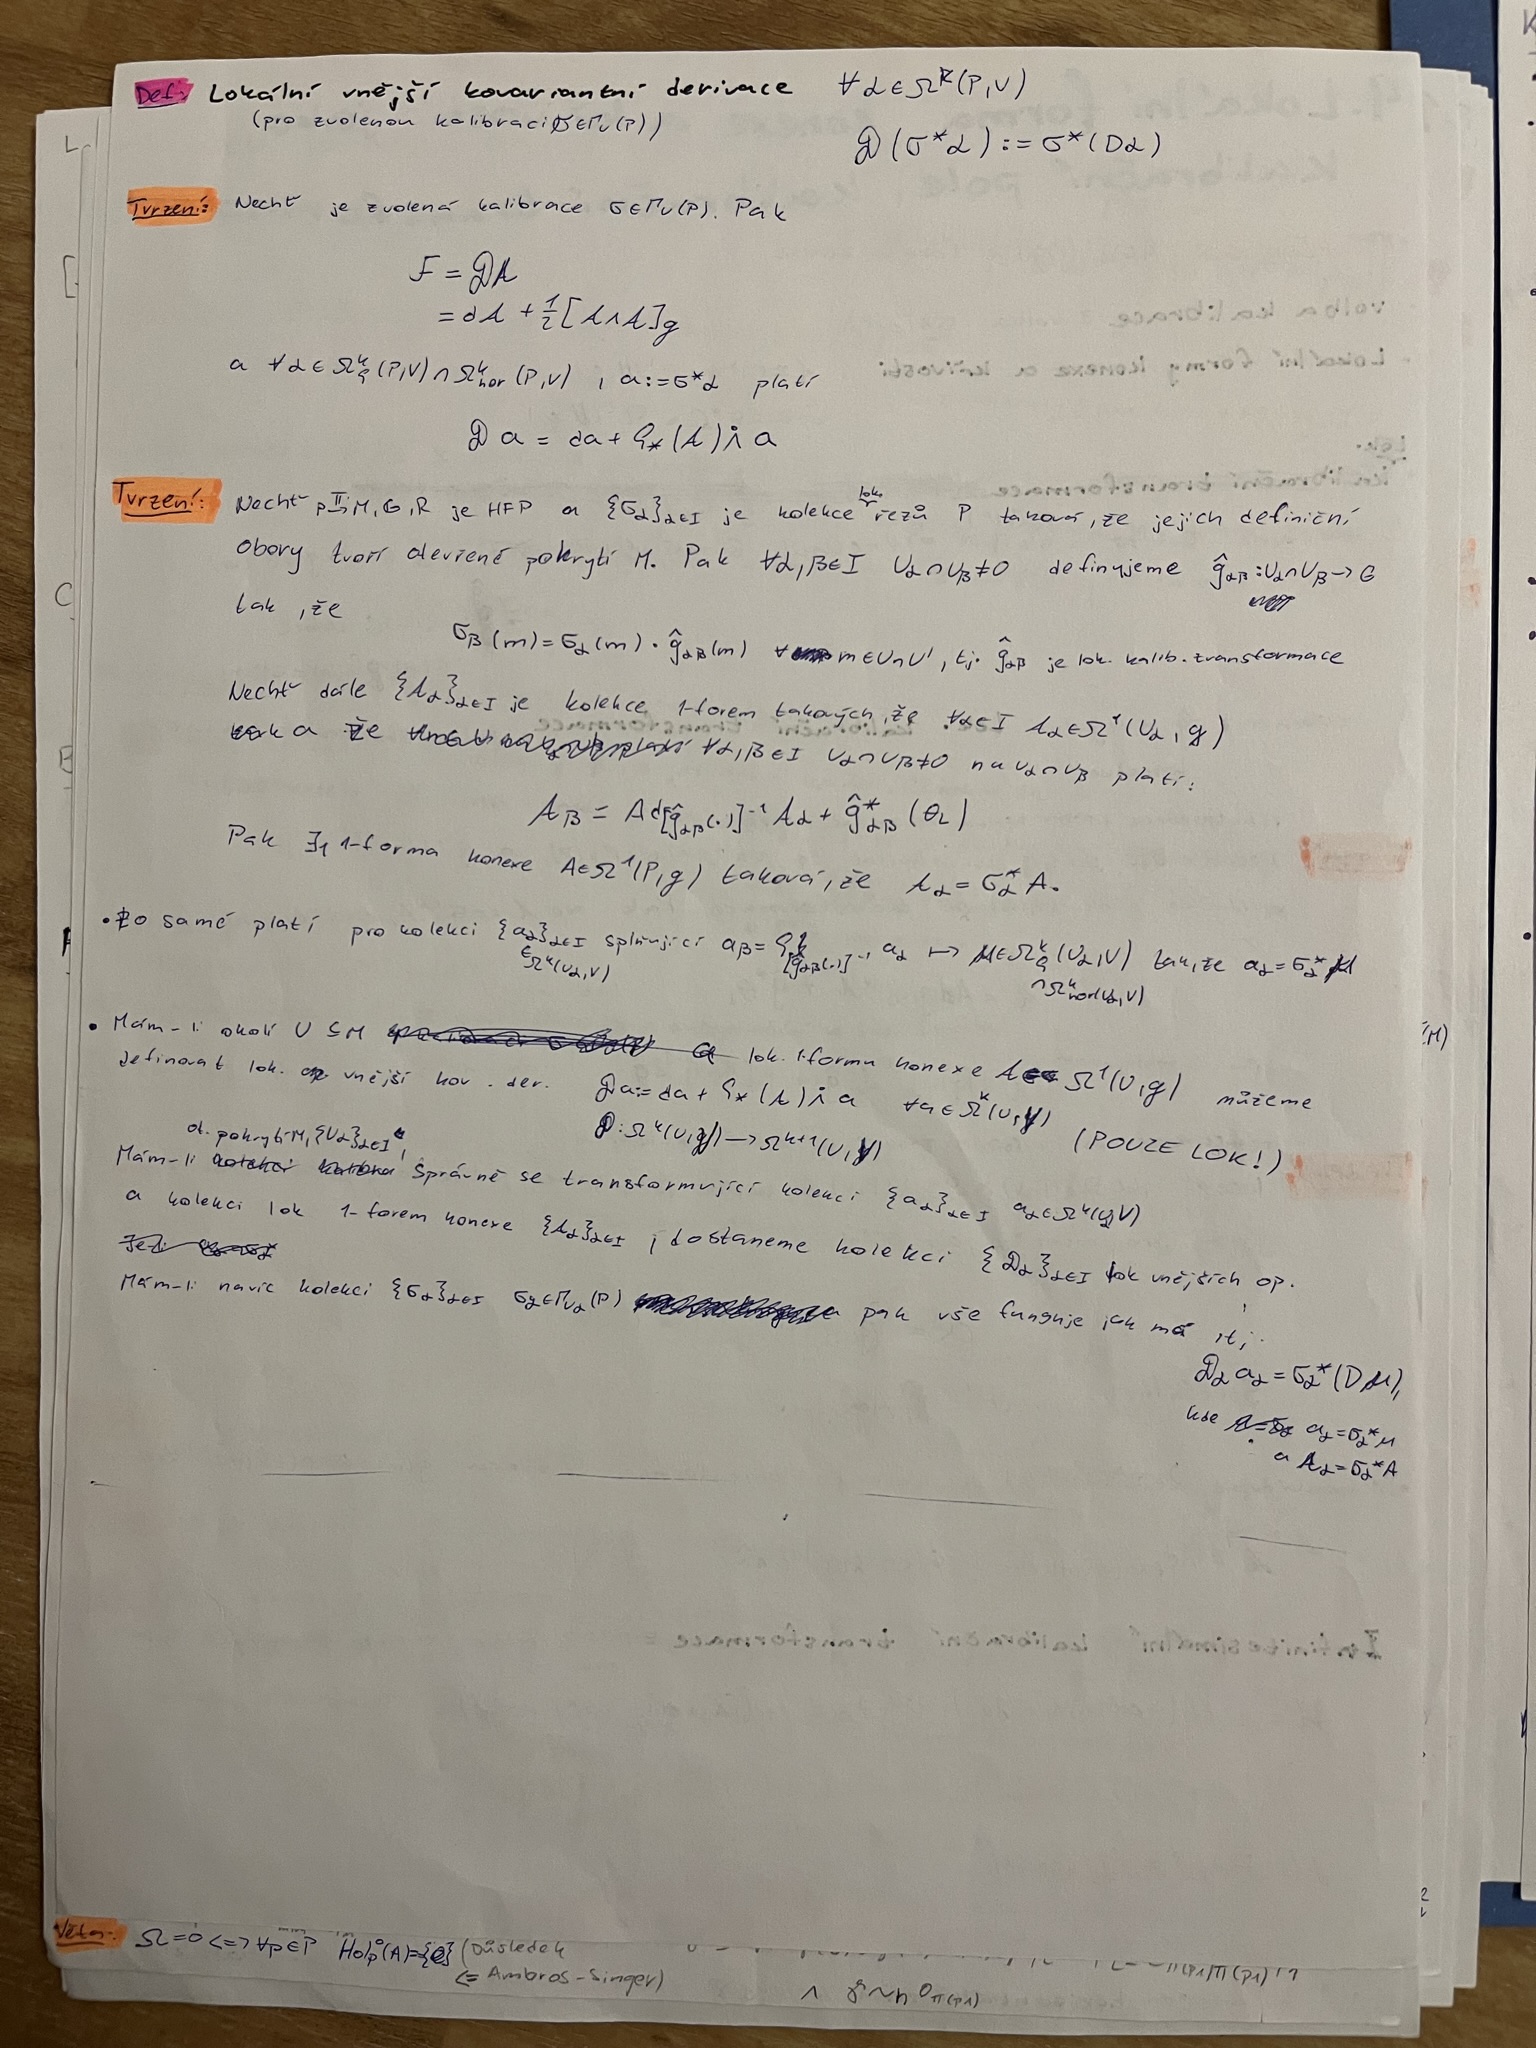 Def: Lokální vnější kovariantní derivace ∀α∈Ω^k(P,V)
(pro zvolenou kalibraci σ∈Γ_U(P))
𝒟(σ*α) := σ*(Dα)
Tvrzení: Nechť je zvolená kalibrace σ∈Γ_U(P). Pak
F = 𝒟A
= dA + ½[A∧A]_g
a ∀α∈Ω^k_ϱ(P,V)∩Ω^k_hor(P,V) , a:=σ*α platí
𝒟a = da + ϱ_*(A)∧̇a
Tvrzení: Nechť P→^Π M, G, R je HFP a {σ_α}_{α∈I} je kolekce lok. řezů P taková, že jejich definiční
obory tvoří otevřené pokrytí M. Pak ∀α,β∈I U_α∩U_β≠0 definujeme ĝ_αβ : U_α∩U_β→G
tak, že
σ_β(m) = σ_α(m)·ĝ_αβ(m) ∀ m∈U∩U', tj. ĝ_αβ je lok. kalib. transformace
Nechť dále {A_α}_{α∈I} je kolekce 1-forem takových, že ∀α∈I A_α∈Ω¹(U_α, g)
a že ∀α,β∈I U_α∩U_β≠0 na U_α∩U_β platí:
A_β = Ad_{[ĝ_αβ(.)]^-1} A_α + ĝ*_αβ(θ_L)
Pak ∃₁ 1-forma konexe A∈Ω¹(P,g) taková, že A_α = σ_α* A.
• To samé platí pro kolekci {a_α}_{α∈I} splňující a_β = ϱ_{[ĝ_αβ(.)]^-1} a_α ↦ μ∈Ω^k_ϱ(U_α,V) tak, že a_α = σ_α* μ
∈Ω^k(U_α,V) ∩Ω^k_hor(U_α,V)
• Mám-li okolí U⊆M a lok. 1-formu konexe A∈Ω¹(U,g) můžeme
definovat lok. vnější kov. der. 𝒟a := da + ϱ_*(A)∧̇a ∀a∈Ω^k(U,V)
𝒟: Ω^k(U,V)→Ω^{k+1}(U,V) (POUZE LOK!)
o. pokrytí M, {U_α}_{α∈I},
Mám-li správně se transformující kolekci {a_α}_{α∈I} a_α∈Ω^k(U,V)
a kolekci lok 1-forem konexe {A_α}_{α∈I}, dostaneme kolekci {𝒟_α}_{α∈I} lok vnějších op.
Mám-li navíc kolekci {σ_α}_{α∈I} σ_α∈Γ_{U_α}(P) pak vše funguje jak má, tj.
𝒟_α a_α = σ_α*(Dμ),
kde a_α = σ_α* μ
a A_α = σ_α* A
Věta: Ω=0 <=> ∀p∈P Hol⁰_p(A)={e} (Důsledek
<= Ambros-Singer)